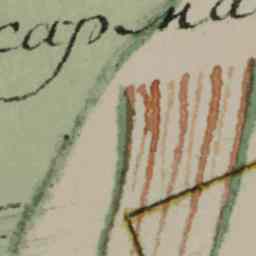 сарма